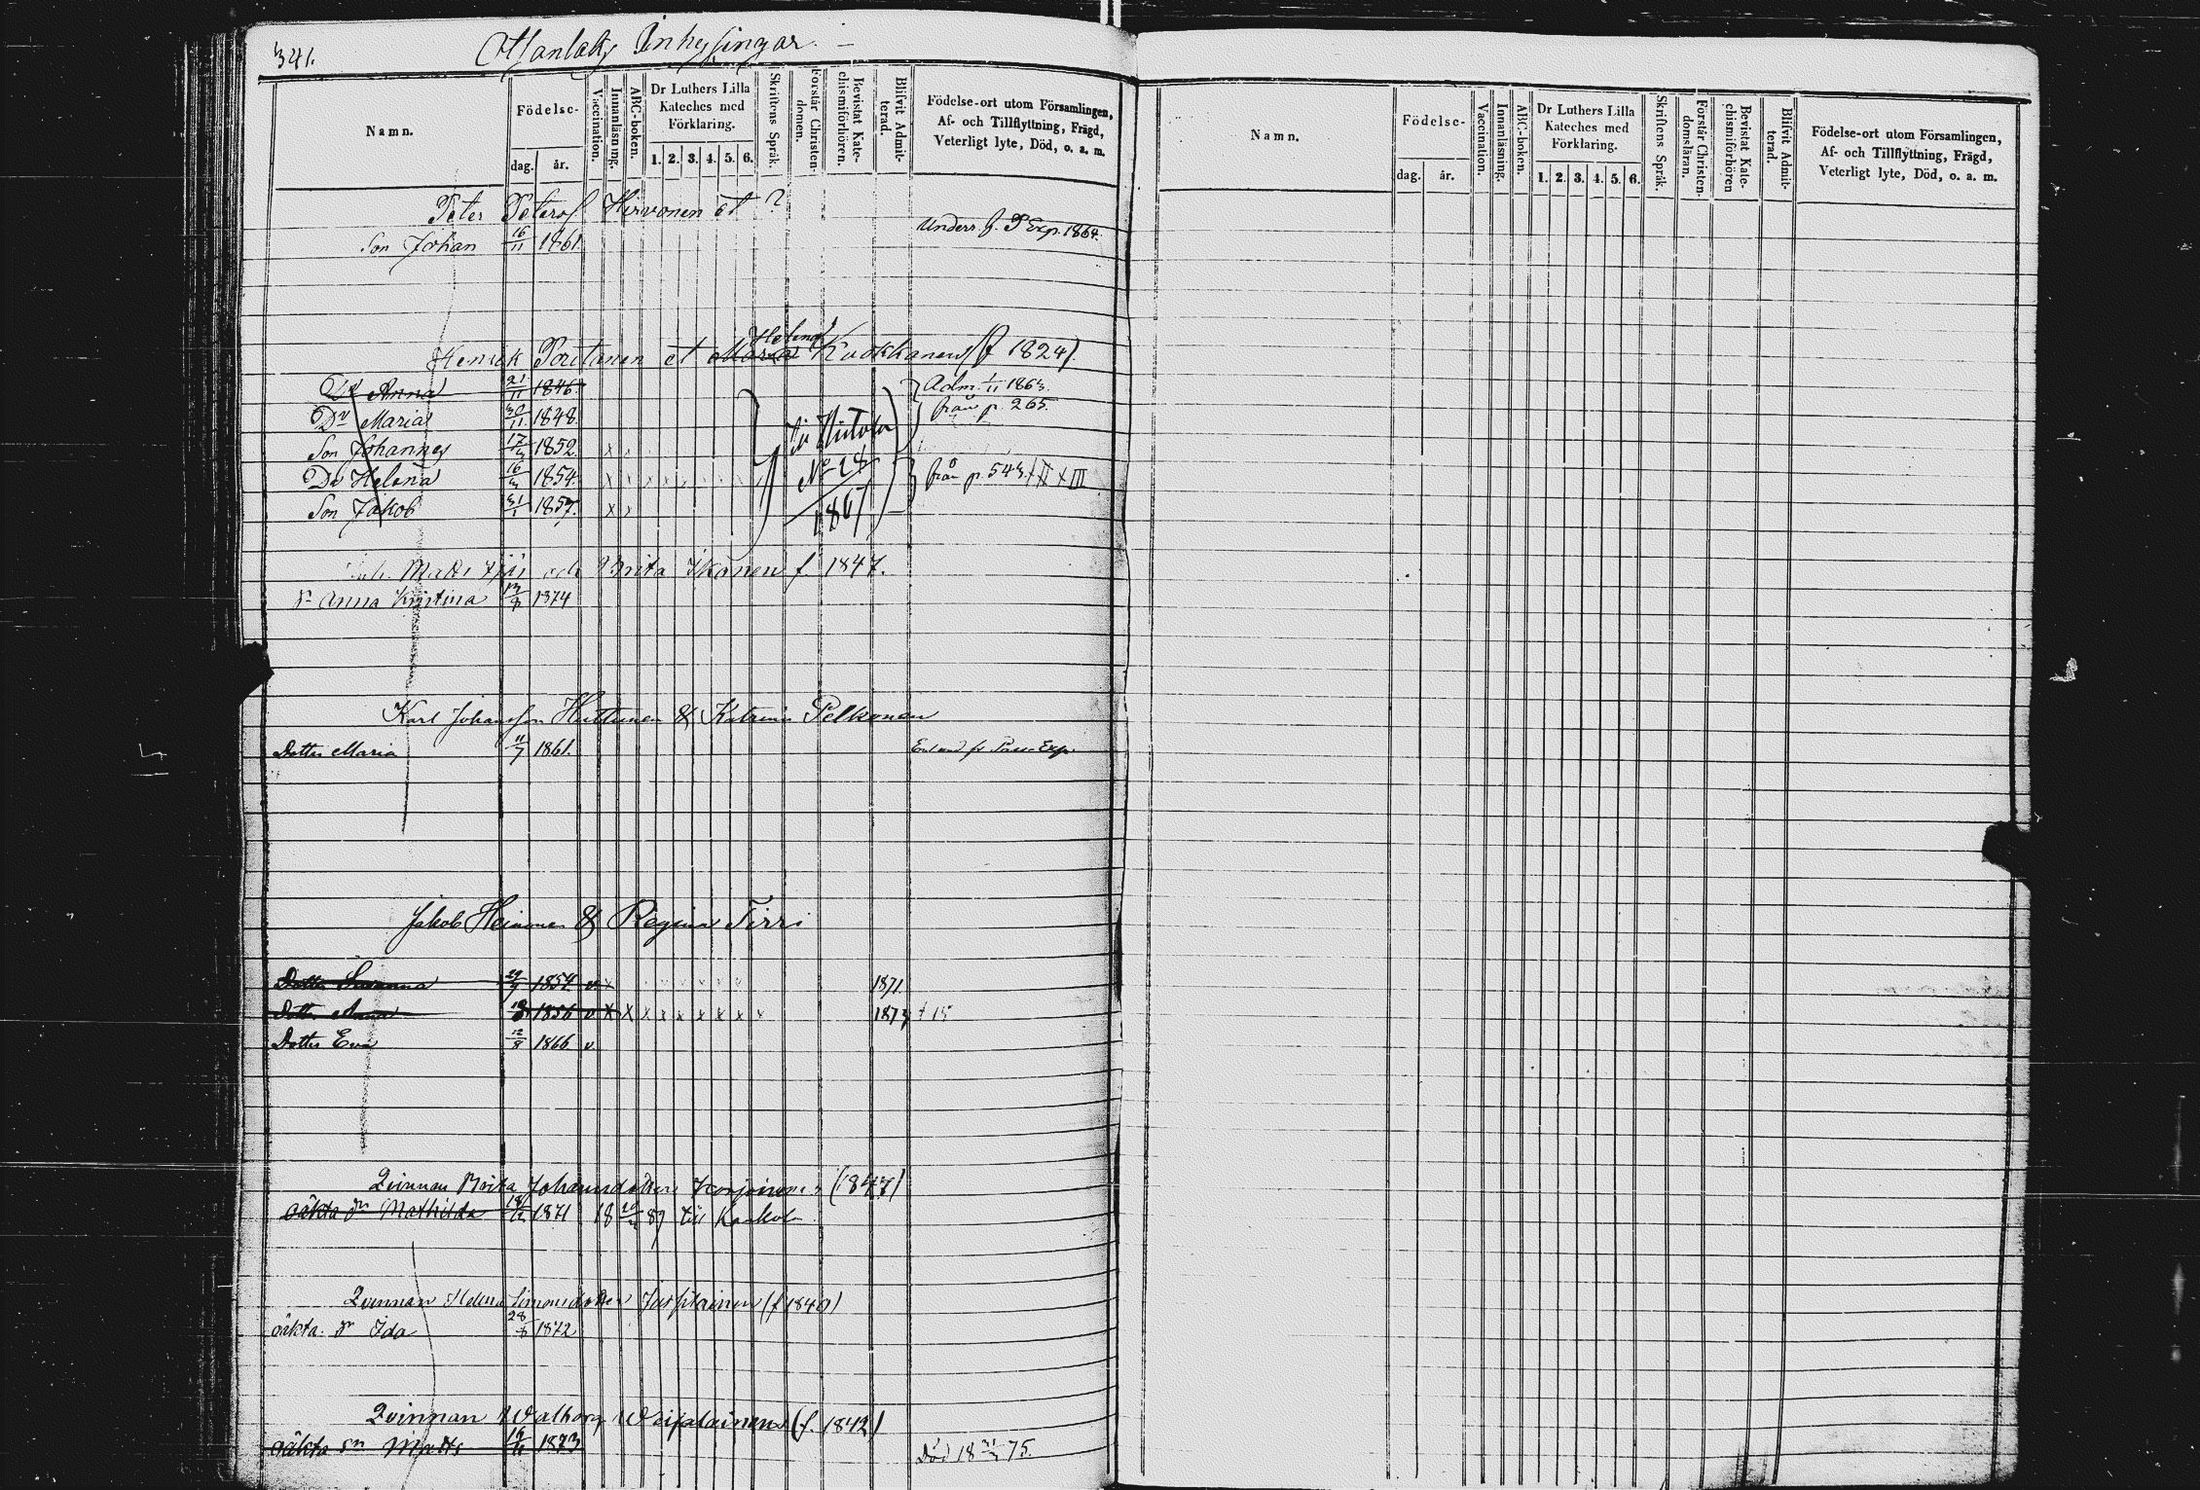 341.
Inhysingar. —
Namn.
Födelse-
dag. år.
Vaccination.
Innanläsning.
ABC-boken.
Dr Luthers Lilla Kateches med Förklaring.
1. 2. 3. 4. 5. 6.
Skriftens Språk.
Förstår Christendomen.
Bevistat Katechismiförhören.
Blifvit Admitterad.
Födelse-ort utom Församlingen,
Af- och Tillflyttning, Frägd,
Veterligt lyte, Död, o. a. m.
Peter Petersf. Hirvonen et ?
Son Johan 16/11 1861.
Underr. f. P Exp. 1864.
Helena
Henrik et Maria Kuokkanen (f 1824)
Dr Anna 21/11 1846. Adm. 1/11 1863.
Dr Maria 30/11 1848. från p. 265.
Son Johannes 17/3 1852. x
Dr Helena 16/3 1854. från p. 543.
Son Jakob 31/1 1857. x x
till Hiitola
No 28
1867
Matts och Brita Ikonen f. 1847.
Dr Anna Kristina 1874
Karl Johansson Huttunen & Katrina Pelkonen
Dotter Maria 11/7 1861.
Jakob Heinonen & Regina Tirri
Dotter Susanna 1854. v. x 1871.
Dotter Anna 1856 v. x x x x x x x x x 1873
Dotter Eva 12/8 1866 v.
Qvinnan Brita Johansdotter (1847)
oäkta dr Mathilda 1871 till Kaukola
Qvinnan Helena Simonsdotter (f 1840)
oäkta dr Ida 28/8 1872
Qvinnan Walborg (f. 1842)
oäkta sn Matts 16/11 1873
Död 18 75.
Namn.
Födelse-
dag. år.
Vaccination.
Innanläsning.
ABC-boken.
Dr Luthers Lilla Kateches med Förklaring.
1. 2. 3. 4. 5. 6.
Skriftens Språk.
Förstår Christendomsläran.
Bevistat Katechismiförhören
Blifvit Admitterad.
Födelse-ort utom Församlingen,
Af- och Tillflyttning, Frägd,
Veterligt lyte, Död, o. a. m.